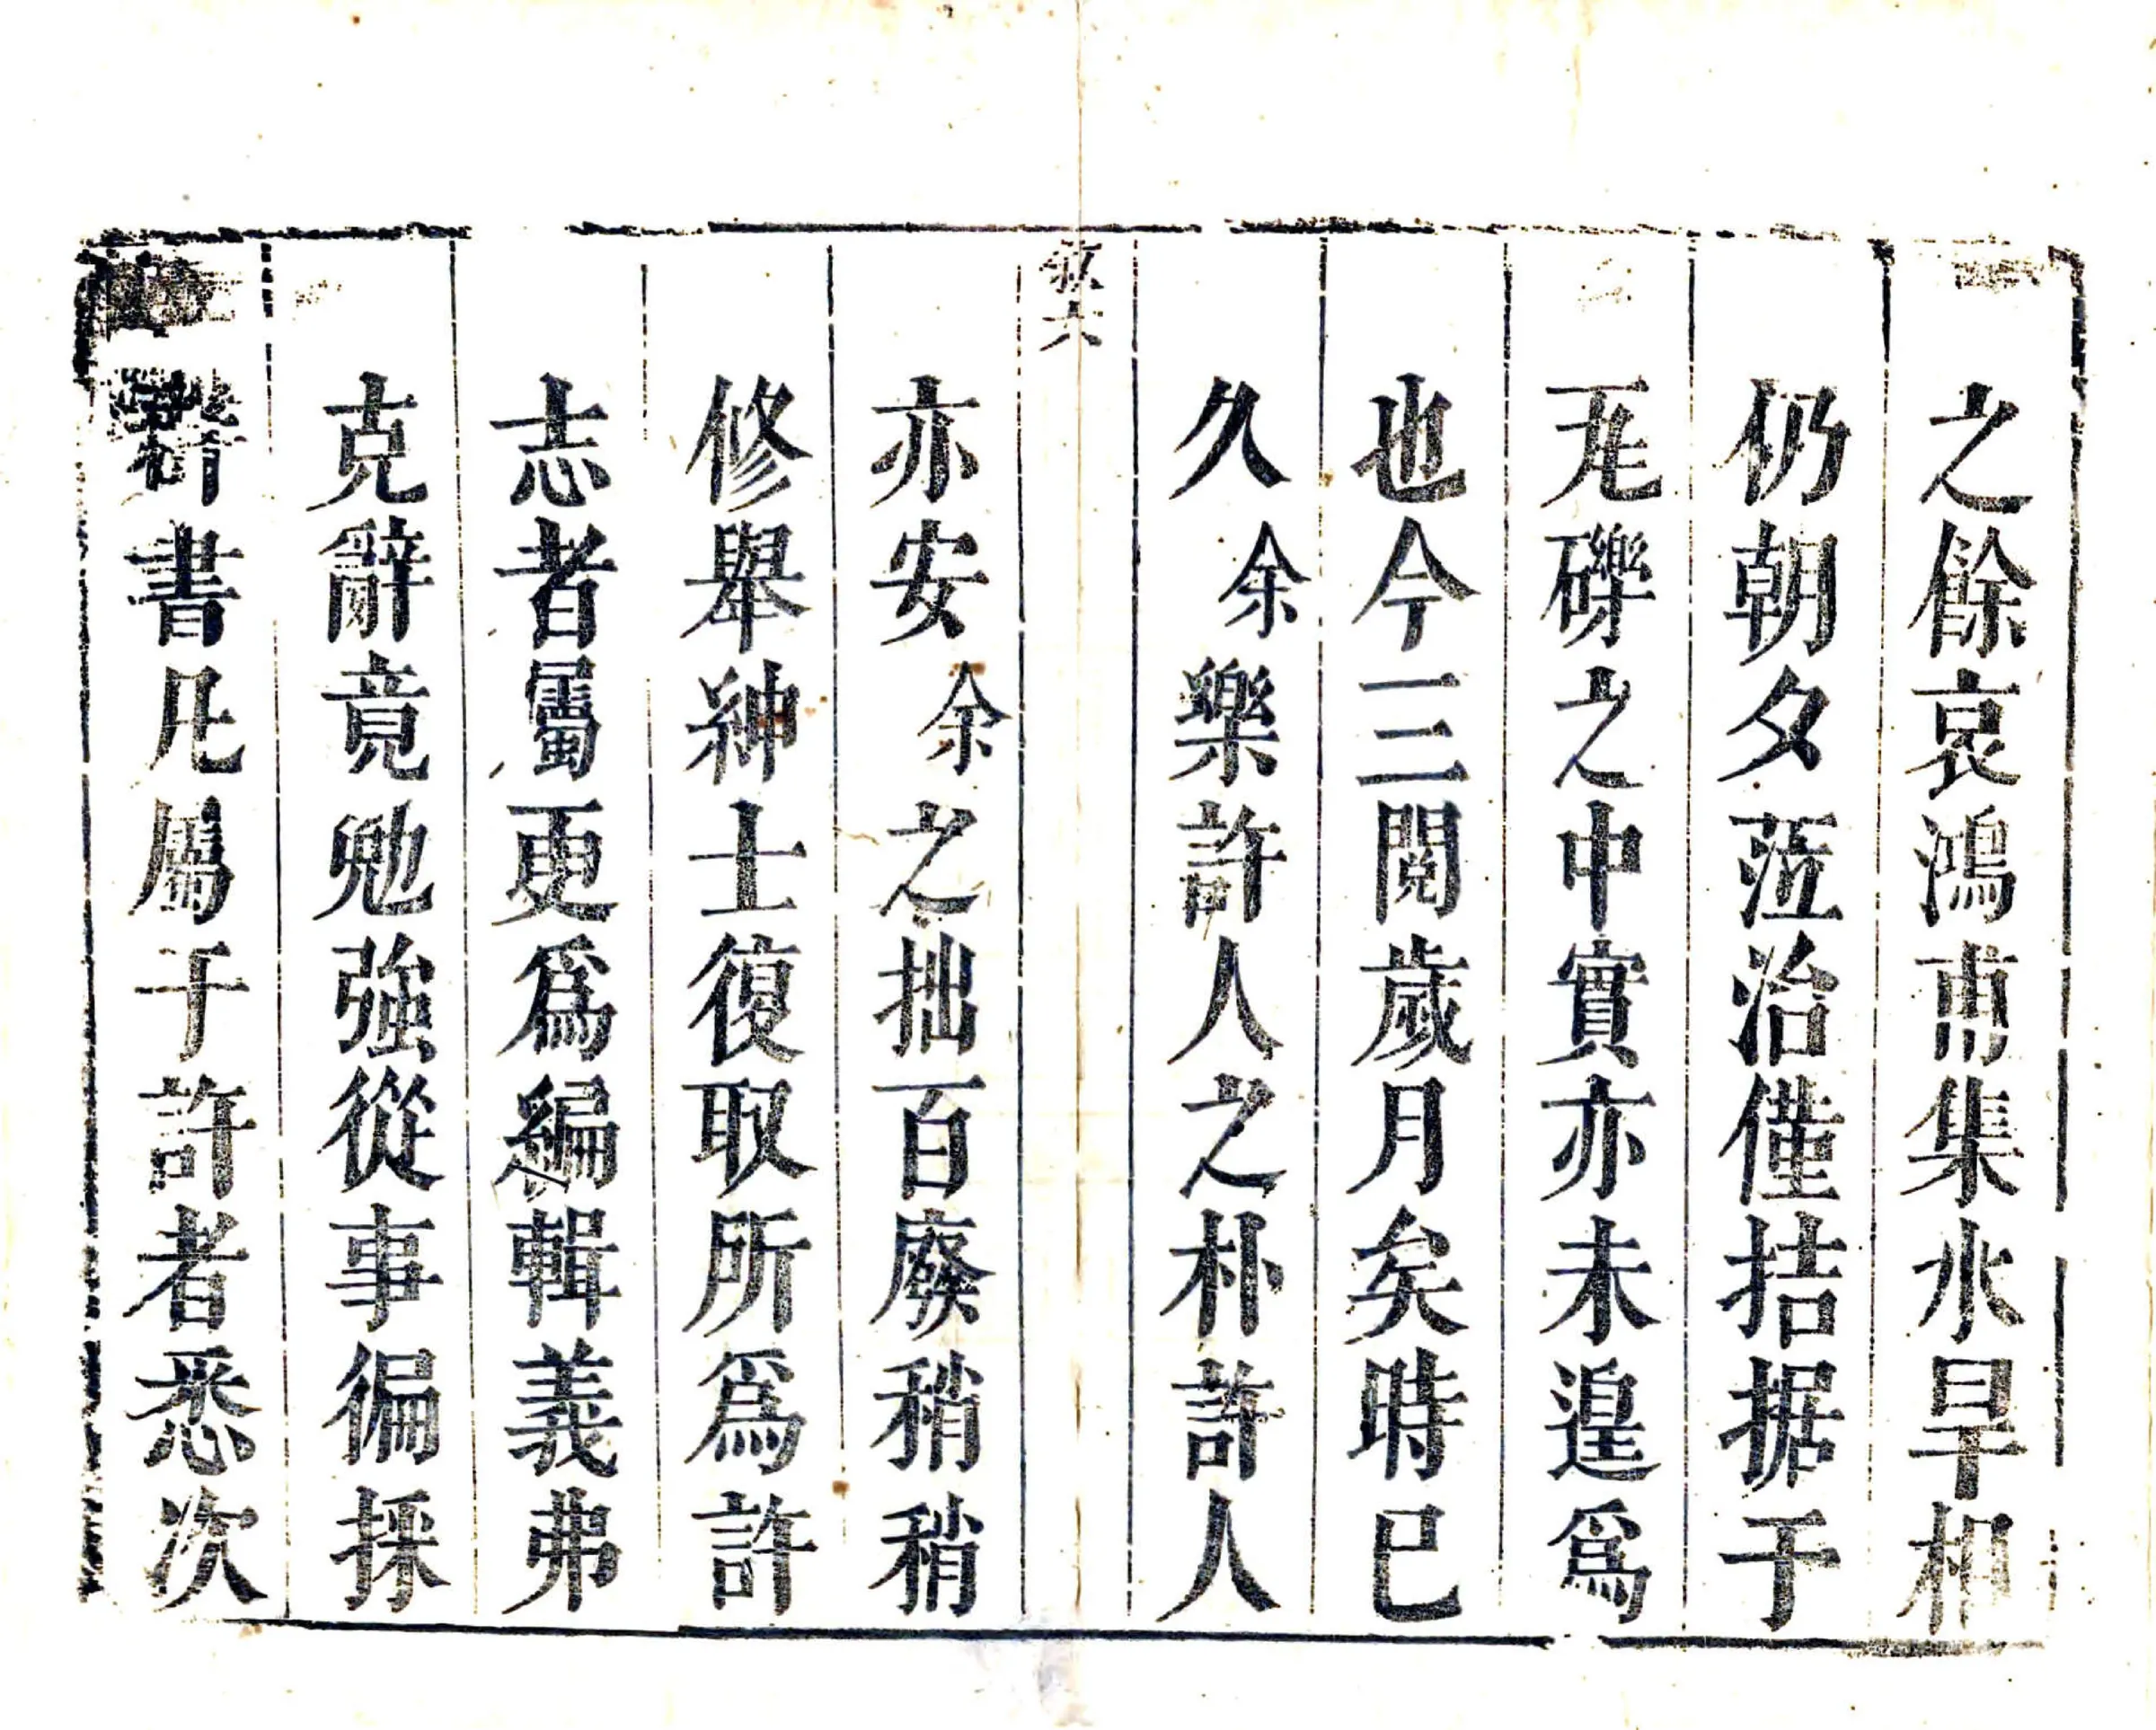 之餘哀鴻甫集水旱相
仍朝夕蒞治僅拮据于
瓦礫之中實亦未遑爲
也今三閱歲月矣時已
久余樂許人之朴許人
亦安余之拙百廢稍稍
修舉紳士復取所爲許
志者屬更爲編輯義弗
克辭竟勉強從事徧採
書凡屬于許者悉次